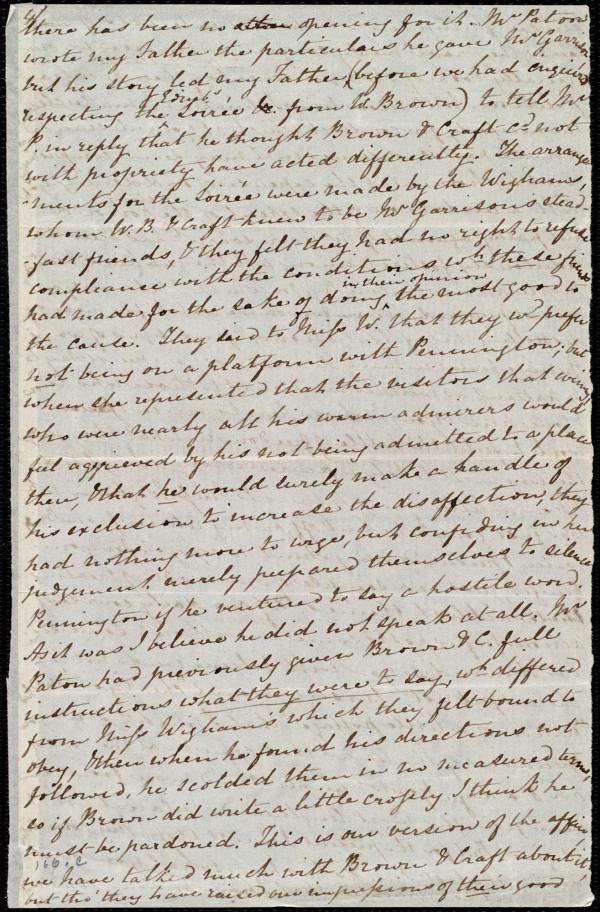 4/
there has been no other opening for it. Mr. Paton
wrote my Father the particulars he gave Mr Garrison
but his story led my Father (before we had enquired
respecting the Edinbh. Soirée &c. from W. Brown) to tell Mr
P. in reply tht he thought Brown & Craft cd. not
with propriety have acted differently. The arrange
-ments for the Soirée were made by the Wighams,
whom W. B. & Craft knew to be Mr Garrison's stead-
-fast friends, & they felt they had no right to refuse
compliance with the conditions wh. these friends
had made for the sake of doing, in their opinion the most good to
the cause. They said to Miss W. that they wd. prefer
not being on a platform with Pennington; but
when she represented that the visitors that evening
who were nearly all his warm admirers would
feel aggrieved by his not being admitted to a place
there, & that he would surely make a handle of
his exclusion to increase the disaffection, they
had nothing more to urge, but confiding in her
judgement merely prepared themselves to silence
Pennington if he ventured to say a hostile word.
As it was I believe he did not speak at all. Mr
Paton had previously given Brown & C. full
instructions what they were to say, wh. differed
from Miss Wigham's which they felt bound to
obey, & then when he found his directions not
followed, he scolded them in no measured terms,
so if Brown did write a little crossly I think he
must be pardoned. This is our version of the affair
we have talked much with Brown & Craft about it,
but tho' they have raised our impressions of their good